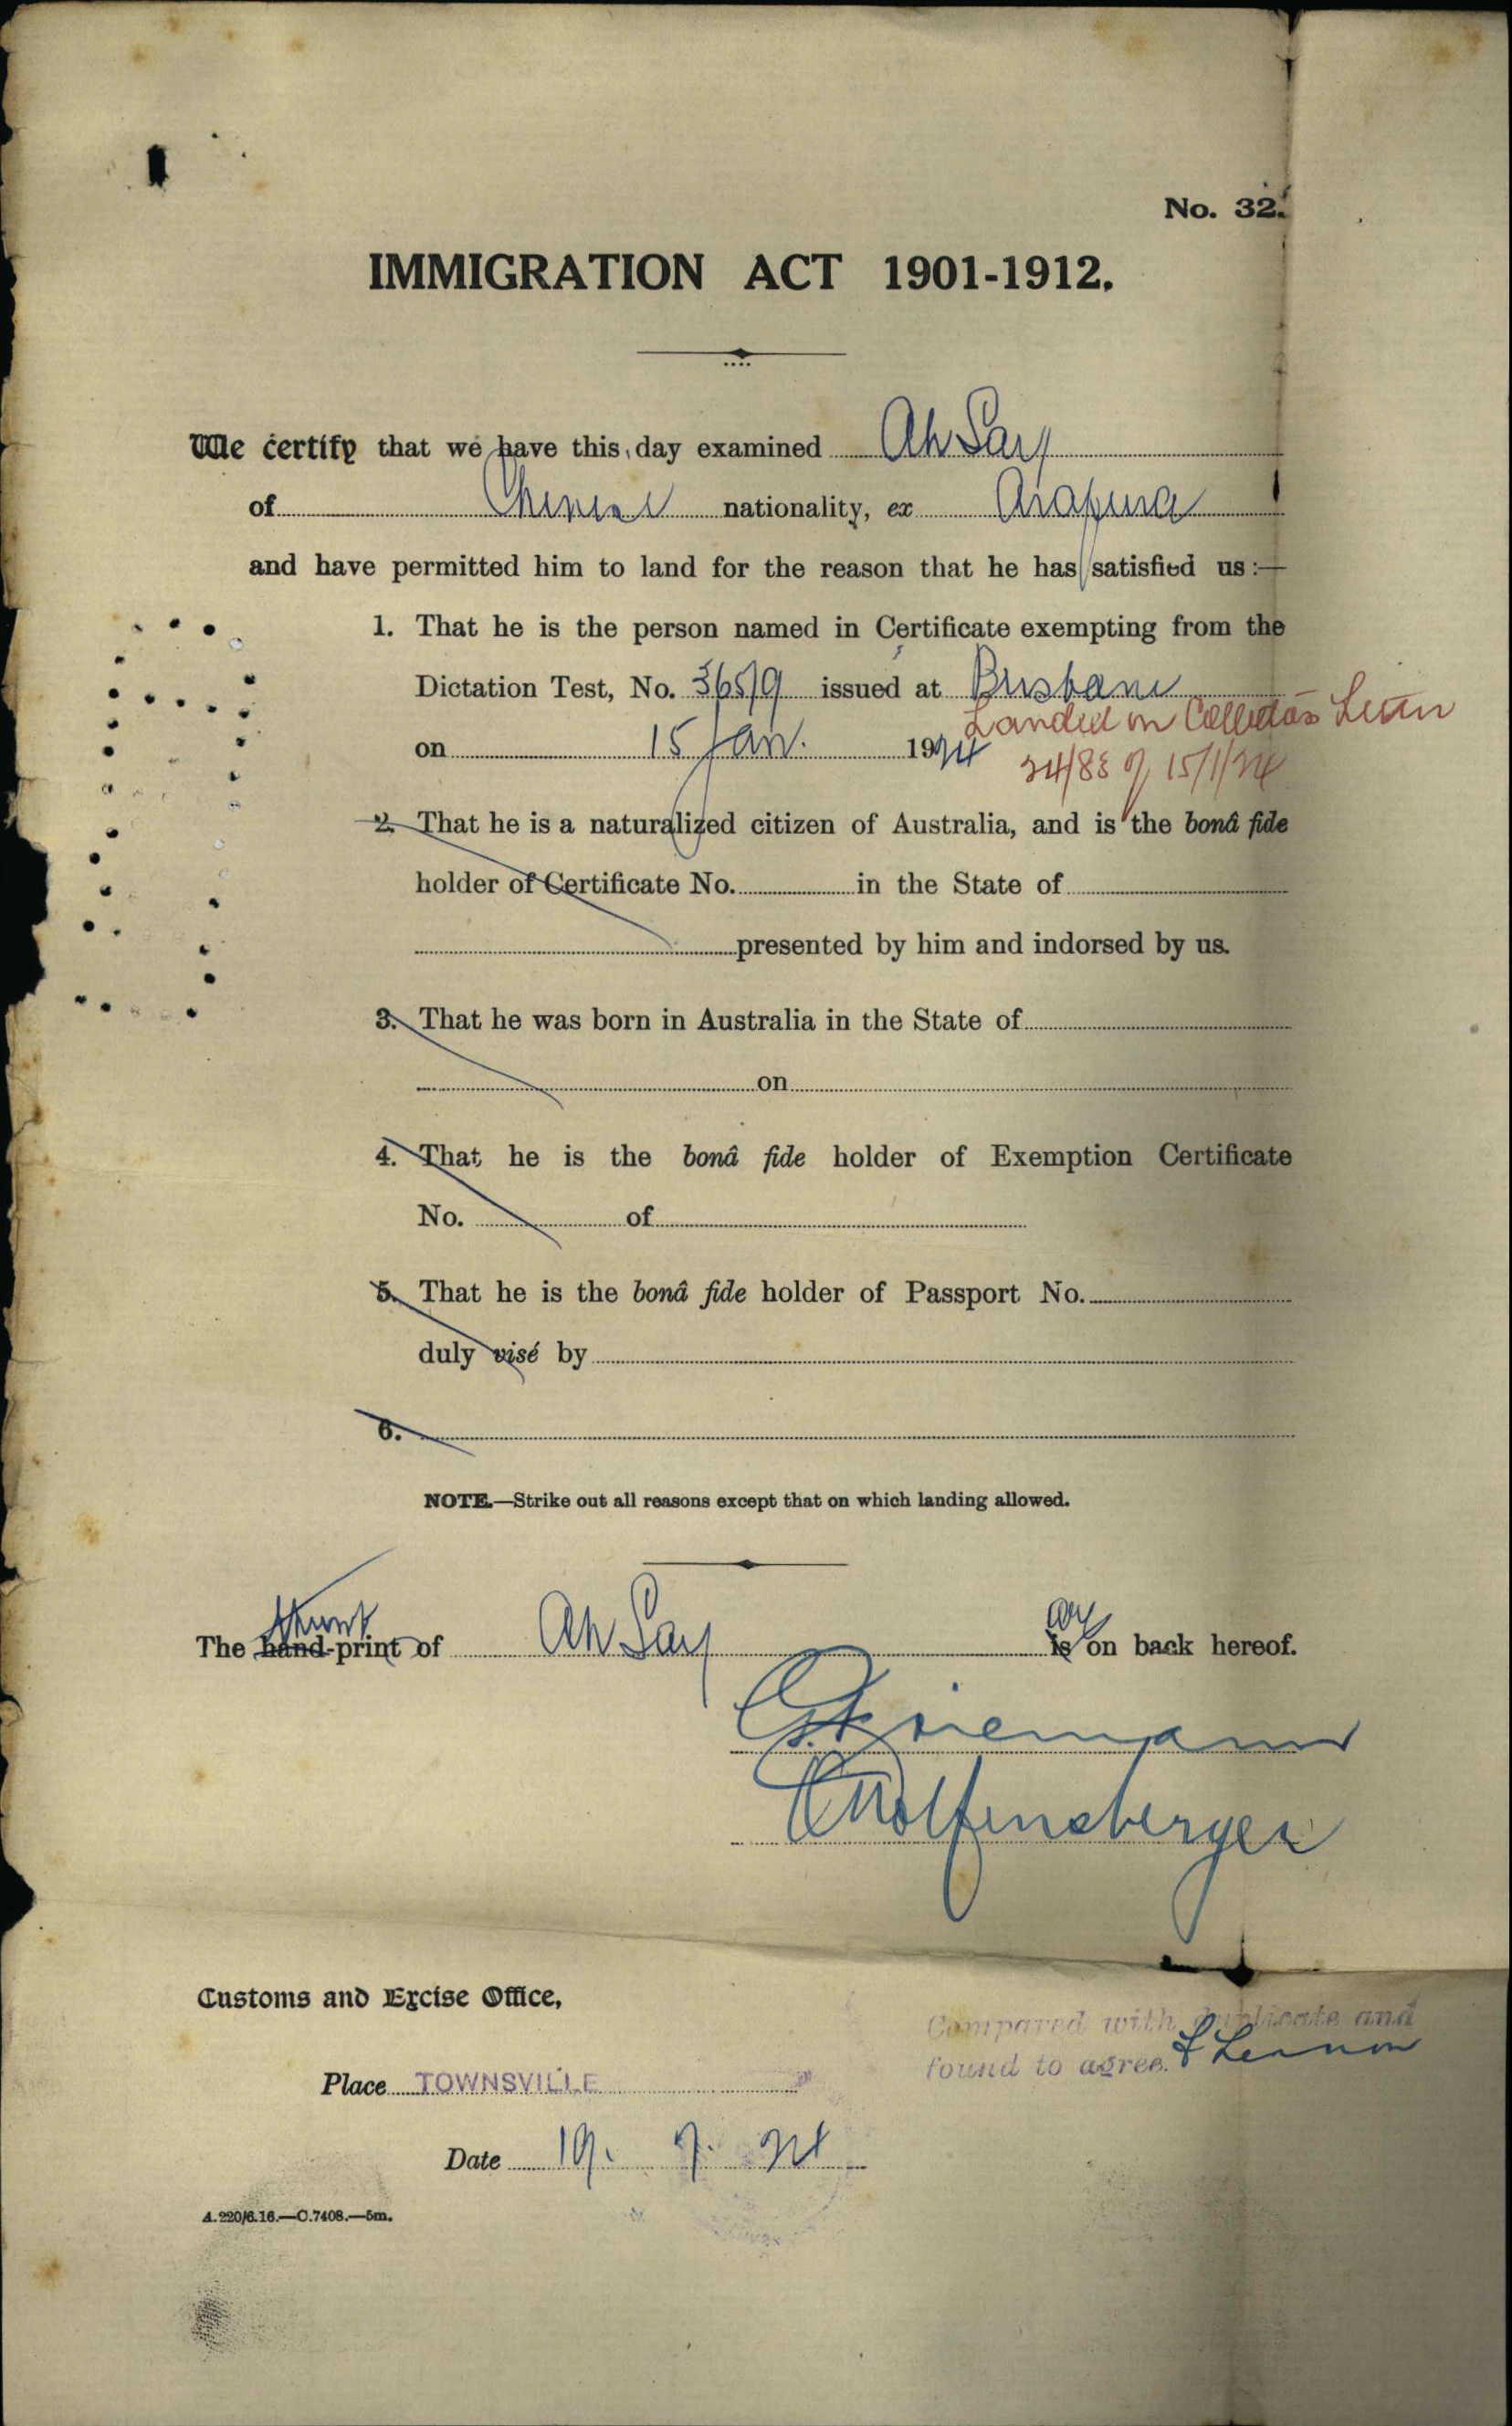 No. 32.
IMMIGRATION ACT 1901-1912.
We certify that we have this day examined Ah Say
of Chinese nationality, ex Arafura
and have permitted him to land for the reason that he has satisfied us:—
1. That he is the person named in Certificate exempting from the
Dictation Test, No. 365/9 issued at Brisbane
Landed on Collector's Letter
on 15 Jan. 1924
24/88 of 15/1/24
2. That he is a naturalized citizen of Australia, and is the bonâ fide
holder of Certificate No. in the State of
presented by him and indorsed by us.
3. That he was born in Australia in the State of
on
4. That he is the bonâ fide holder of Exemption Certificate
No. of
5. That he is the bonâ fide holder of Passport No.
duly visé by
6.
NOTE.—Strike out all reasons except that on which landing allowed.
thumb are
The hand-print of Ah Say is on back hereof.
Wolfensberger
Customs and Excise Office,
Compared with duplicate and
found to agree. Lennon
Place TOWNSVILLE
Date 19. 7. 24
A.220/6.16.—C.7408.—5m.